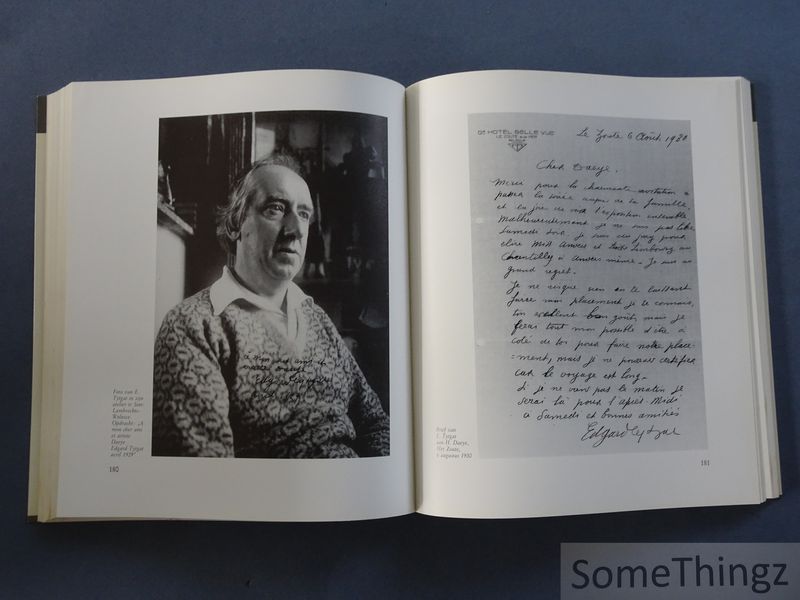 Foto van E.
Tytgat in zijn
atelier te Sint-
Lambrechts-
Woluwe
Opdracht: ‚A
mon cher ami
et artiste
Daeye
Edgard Tytgat
avril 1929'
à mon cher ami et
artiste Daeye
180
Gd HOTEL BELLE VUE
LE ZOUTE
Le Zoute 6 Août, 1930
Cher Daeye.
Merci pour la charmante invitation à
passer la soirée auprès de ta famille,
et la joie de voir l'exposition ensemble
Malheureusement je ne suis pas libre
Samedi soir je suis du jury pour
élire Miss Anvers et Limbourg au
Chantilly à Anvers même. Je suis au
grand regret.
Je ne risque rien en te laissant
faire mon placement je te connais,
ton excellent bon goût, mais je
ferai tout mon possible d'être à
coté de toi pour faire notre place-
=ment, mais je ne pourrai certifier
car le voyage est long.
Si je ne viens pas le matin je
serai là pour l'après-Midi
à Samedi et bonnes amitiés
Edgard Tytgat
Brief van
E. Tytgat
aan H. Daeye,
Het Zoute,
6 augustus 1930
181
SomeThingz